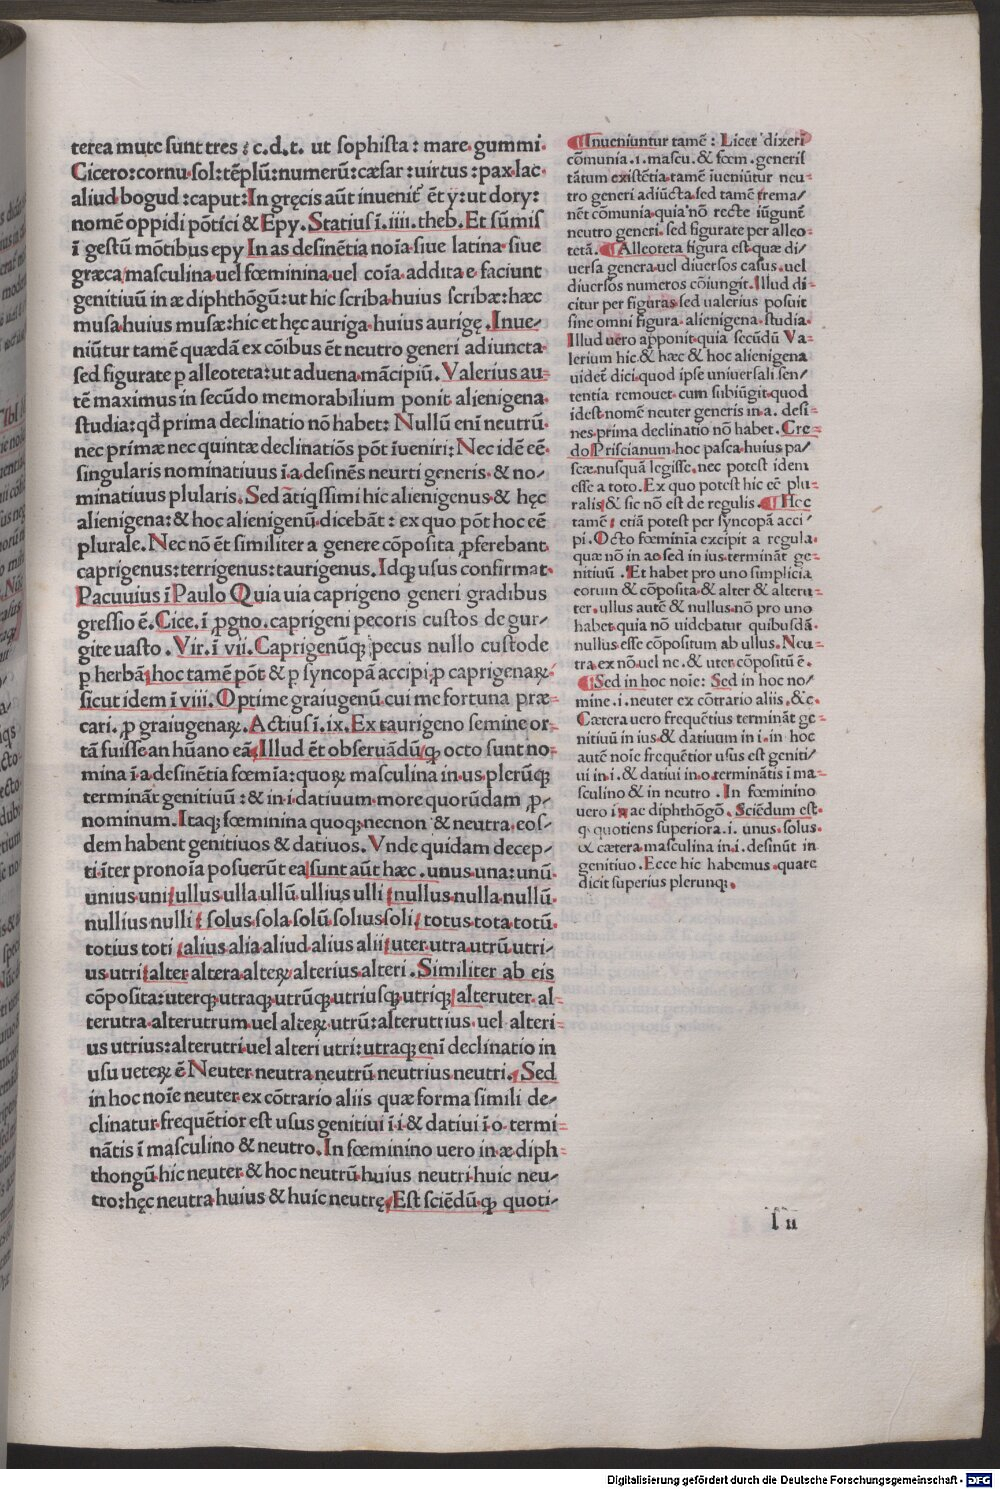 terea mutę sunt tres : c.d.t. ut sophista : mare. gummi.
Cicero:cornu.sol:tēplū:numerū:cæsar:uirtus:pax.lac.
aliud.bogud:caput:In gręcis aūt inuenit̄ ēt y:ut dory:
nomē oppidi pōtici & Epy. Statius ī.iiii.theb. Et sūmis
ī gestū mōtibus epy In as desinētia noīa siue latina siue
græca/masculina uel fœminina.uel coīa.addita e faciunt
genitiuū in æ diphthōgū:ut hic scriba.huius scribæ:hæc
musa.huius musæ:hic et hęc auriga.huius aurigę.Inue/
niūtur tamē quædā ex cōibus ēt neutro generi adiuncta.
sed figurate p alleoteta:ut aduena.mācipiū. Valerius au=
tē maximus in secūdo memorabilium ponit alienigena.
studia:qd̄ prima declinatio nō habet: Nullū eni neutrū.
nec primæ nec quintæ declinatiōis pōt īueniri: Nec idē eē.
singularis nominatiuus ī.a.desinēs neurti generis.& no/
minatiuus plularis. Sed ātiqssimi hic alienigenus.& hęc
alienigena:& hoc alienigenū.dicebāt: ex quo pōt hoc eē
plurale. Nec nō ēt similiter a genere cōposita proferebant
caprigenus:terrigenus:taurigenus. Idq; usus confirmat.
Pacuuius ī Paulo Quia uia caprigeno generi gradibus
gressio ē. Cice. ī ꝓgno. caprigeni pecoris custos de gur/
gite uasto. Vir. ī vii. Caprigenūq; pecus nullo custode
p herbā/hoc tamē pōt & p syncopā accipi.p caprigenaꝝ
sicut idem ī viii. Optime graiugenū.cui me fortuna præ=
cari. p graiugenaꝝ. Actius ī.ix. Ex taurigeno semine or=
tā fuisse an hūano eā. Illud ēt obseruādū/ꝙ octo sunt no=
mina ī.a.desinētia fœmīa:quoꝝ masculina in.us.plerūq;
terminār genitiuū:& in.i.datiuum.more quorūdam ꝓ/
nominum. Itaq; fœminina quoq; necnon & neutra.eos/
dem habent genitiuos & datiuos. Vnde quidam decep/
ti.īter pronoīa posuerūt ea/sunt aūt hæc.unus.una:unū.
unius uni/ullus ulla ullū.ullius ulli/nullus.nulla.nullū.
nullius nulli/solus.sola.solū.solius.soli/totus.tota.totū.
totius toti/alius alia.aliud.alius alii/uter.utra.utrū.utri/
us.utri/alter altera.alteꝝ/alterius.alteri. Similiter ab eis
cōposita:uterq;.utraq;.utrūq;.utriusq;.utriq;/alteruter.al=
terutra.alterutrum.uel alteꝝ utrū:alterutrius.uel alteri=
us utrius:alterutri.uel alteri utri:utraq; eni declinatio in
usu ueteꝝ ē Neuter neutra neutrū neutrius neutri. Sed
in hoc noīe neuter.ex cōtrario aliis quæ forma simili de/
clinatur.frequētior est usus genitiui ī.i.& datiui ī.o.termi=
nātis ī masculino & neutro. In fœminino uero in.æ.diph=
thongū.hic neuter.& hoc neutrū.huius neutri.huic neu/
tro:hęc neutra huius & huic neutrę/Est sciēdū.ꝙ quoti/
Inueniuntur tamē: Licet dixeri
cōmunia.i.mascu.& fœm.generis
tātum existētia.tamē iueniūtur neu=
tro generi adiūcta.sed tamē rema/
nēt cōmunia.quia nō recte iūgunt̄
neutro generi. sed figurate per alleo=
tetā. Alleoteta figura est.quæ di/
uersa genera.uel diuersos casus.uel
diuersos numeros cōiungit. Illud di=
citur per figuras.sed ualerius posuit
sine omni figura.alienigena.studia.
Illud uero apponit.quia secūdū Va=
lerium hic & hæc & hoc alienigena
uidet̄ dici.quod ipse uniuersali sen/
tentia remouet.cum subiūgit.quod
idest nomē neuter generis in.a. desi=
nes.prima declinatio nō habet. Cre=
do Priscianum.hoc pasca.huius pa/
scæ.nusquā legisse.nec potest idem
esse a toto. Ex quo potest hic eē plu=
ralis & sic nō est de regulis. Hec
tamē: etiā potest per syncopā acci/
pi. Octo fœminia excipit a regula.
quæ nōn in.æ.sed in ius.termināt ge=
nitiuū. Et habet pro uno simplicia
eorum & cōposita.& alter & alteru=
ter.ullus autē & nullus.nō pro uno
habet.quia nō uidebatur quibusdā.
nullus esse cōpositum ab ullus. Neu=
tra.ex nō.uel ne.& uter.cōpositū ē.
Sed in hoc noīe: Sed in hoc no/
mine.i.neuter ex cōtrario aliis.&c.
Cætera uero frequētius termināt ge=
nitiuū in ius.& datiuum in.i.in hoc
autē noīe frequētior usus est geniti/
ui in.i.& datiui in.o.terminātis ī ma=
sculino & in neutro. In fœminino
uero in æ diphthōgō. Sciēdum est.
q. quotiens superiora.i. unus.solus.
& cætera masculina in.i. desinūt in
genitiuo. Ecce hic habemus.quare
dicit superius plerunq;.
l ii
Digitalisierung gefördert durch die Deutsche Forschungsgemeinschaft - DFG